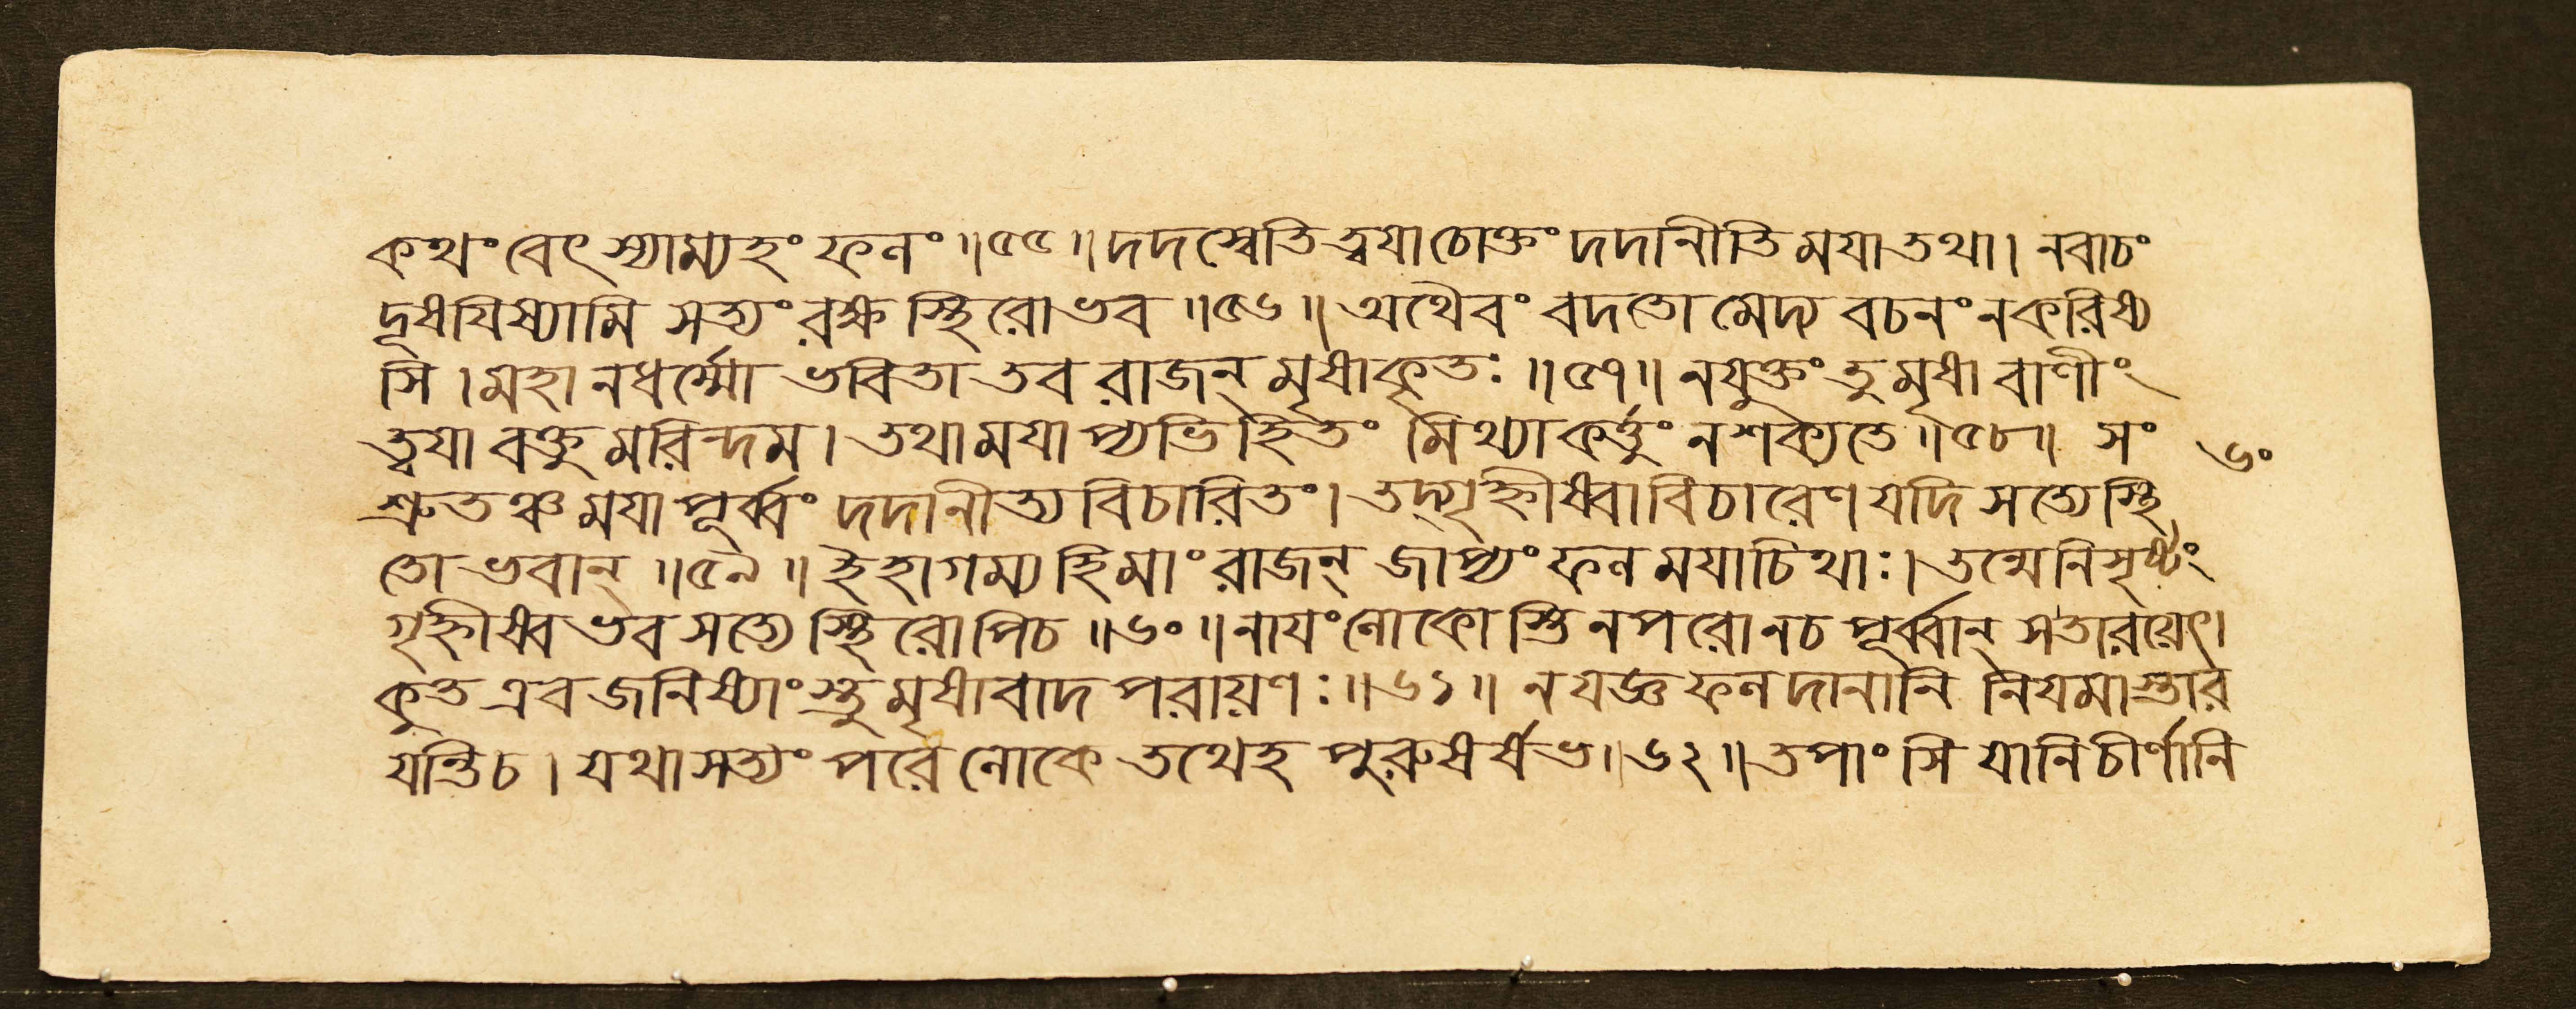 কথং বেৎস্যাম্যহং ফলং ॥৫৫॥ দদস্বেতি ত্বয়া চোক্তং দদানীতি ময়া তথা। ন বাচং
দূষয়িষ্যামি সত্যং রক্ষ স্থিরো ভব ॥৫৬॥ অথৈবং বদতো মেদ্য বচনং ন করিষ্য
সি। মহানধর্ম্মো ভবিতা তব রাজন্ মৃষাকৃতঃ ॥৫৭॥ ন যুক্তং তু মৃষা বাণীং
ত্বয়া বক্তুমরিন্দম। তথা ময়াপ্যভিহিতং মিথ্যা কর্ত্তুং ন শক্যতে ॥৫৮॥ সং
শ্রুতঞ্চ ময়া পূর্ব্বং দদানীত্যবিচারিতং। তদ্গৃহ্নীষ্বাবিচারেণ যদি সত্যে স্থি
তো ভবান্ ॥৫৯॥ ইহাগম্য হি মাং রাজন্ জাপ্যং ফলময়াচিথাঃ। তন্মে নিসৃষ্টং
গৃহ্নীষ্ব ভব সত্যে স্থিরোপি চ ॥৬০॥ নায়ং লোকোস্তি ন পরো ন চ পূর্ব্বান্ স তারয়েৎ।
কুত এব জনিষ্যাংস্তু মৃষাবাদপরায়ণঃ ॥৬১॥ ন যজ্ঞফলদানানি নিয়মাস্তার
য়ন্তি চ। যথা সত্যং পরে লোকে তথেহ পুরুষর্ষভ ॥৬২॥ তপাংসি যানি চীর্ণানি
৬০